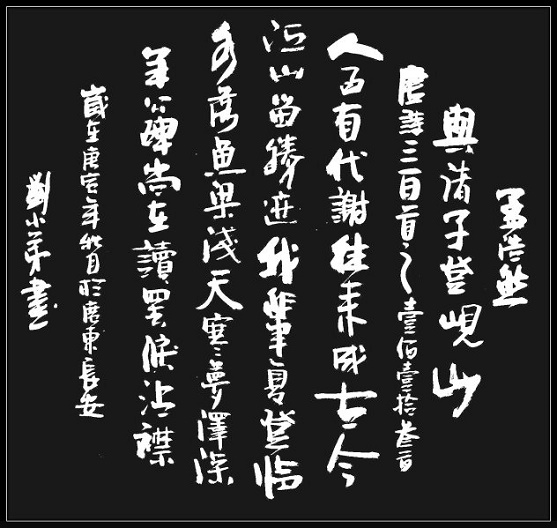 孟浩然
與诸子登峴山
唐詩三百首之壹佰壹拾叁首
人事有代謝往来成古今
江山留勝迹我輩復登臨
水落魚梁淺天寒夢澤深
羊公碑尚在讀罢淚沾襟
歲在庚寅年秋月於廣東長安
劉小書